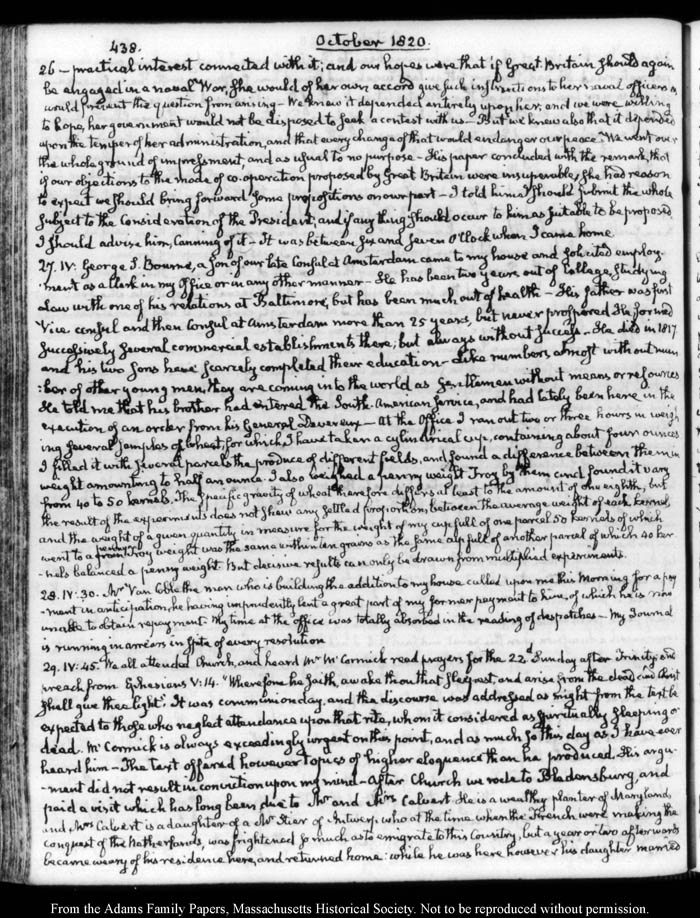 438.
October 1820.
26 — practical interest connected with it; and our hopes were that if Great Britain should again
be engaged in a naval War, she would of her own accord give such instructions to her naval officers as
would prevent the question from arising — We knew it depended entirely upon her; and we were willing
to hope, her government would not be disposed to seek a contest with us — But we knew also that it depended
upon the temper of her administration, and that every change of that would endanger our peace. We went over
the whole ground of impressment, and as usual to no purpose — His paper concluded with the remark, that
if our objections to the mode of co-operation proposed by Great Britain were insuperable, she had reason
to expect we should bring forward some propositions on our part — I told him I should submit the whole
subject to the Consideration of the President; and if any thing should occur to him as suitable to be proposed
I should advise him, Canning of it — It was between six and seven O'Clock when I came home
27. IV: George S. Bourne, a Son of our late Consul at Amsterdam came to my house and solicited employ-
ment as a Clerk in my Office or in any other manner — He has been two years out of College, studying
Law with one of his relations at Baltimore, but has been much out of health — His father was first
Vice consul and then Consul at Amsterdam more than 25 years, but never prospered. He formed
successively several commercial establishments there; but always without success — He died in 1817.
and his two Sons have scarcely completed their education — Like numbers almost without num
:ber of other young men, they are coming into the world as Gentlemen without means, or resources
He told me that his brother had entered the South-American service, and had lately been here in the
execution of an order from his General Devereux — At the Office I ran out two or three hours in weigh
ing several samples of wheat, for which I have taken a cylindrical cup, containing about four ounces
I filled it with several parcels the produce of different fields, and found a difference between them in
weight amounting to half an ounce. I also weighed a penny weight Troy by them and found it vary
from 40 to 50 kernels. The specific gravity of wheat therefore differs at least to the amount of one eighth, but
the result of the experiments does not shew any settled proportion, between the average weight of each kernel,
and the weight of a given quantity in measure for the weight of my cup full of one parcel 50 kernels of which
went to a penny Troy weight was the same within ten grains as the same cup full of another parcel of which 40 ker
-nels balanced a penny weight. But decisive results can only be drawn from multiplied experiments.
28. IV:30. Mr Van Coble the man who is building the addition to my house called upon me this Morning for a pay
-ment in anticipation, he having imprudently lent a great part of my former payment to him, of which he is now
unable to obtain repayment. My time at the office was totally absorbed in the reading of despatches — My Journal
is running in arrears in spite of every resolution
29. IV:45. We all attended Church, and heard Mr McCormick read prayers for the 22d Sunday after Trinity, and
preach from Ephesians V:14. "Wherefore he saith, awake thou that sleepest, and arise from the dead and Christ
shall give thee light." It was communion day, and the discourse was addressed as might from the text be
expected to those who neglect attendance upon that rite, whom it considered as spiritually sleeping or
dead. McCormick is always exceedingly urgent on this point, and as much so this day as I have ever
heard him — The text offered however topics of higher eloquence than he produced. His argu-
-ment did not result in conviction upon my mind — After Church we rode to Bladensburg, and
paid a visit which has long been due to Mr and Mrs Calvert. He is a wealthy planter of Maryland
and Mrs Calvert is a daughter of a Mr Stier of Antwerp who at the time when the French were making the
conquest of the Netherlands, was frightened so much as to emigrate to this Country, but a year or two afterwards
became weary of his residence here, and returned home: while he was here however his daughter married
From the Adams Family Papers, Massachusetts Historical Society. Not to be reproduced without permission.